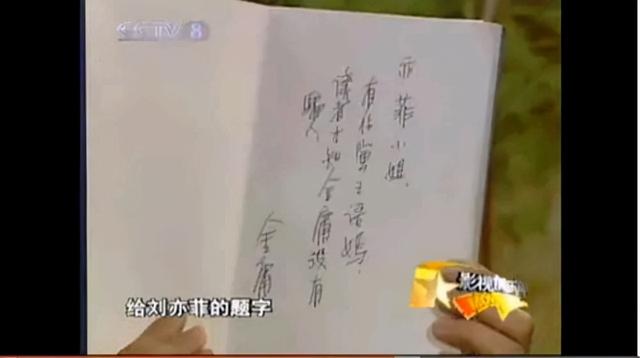 CCTV 8
亦菲小姐，
有你演王语嫣，
读者才知金庸没有
骗人
金庸
给刘亦菲的题字
影视